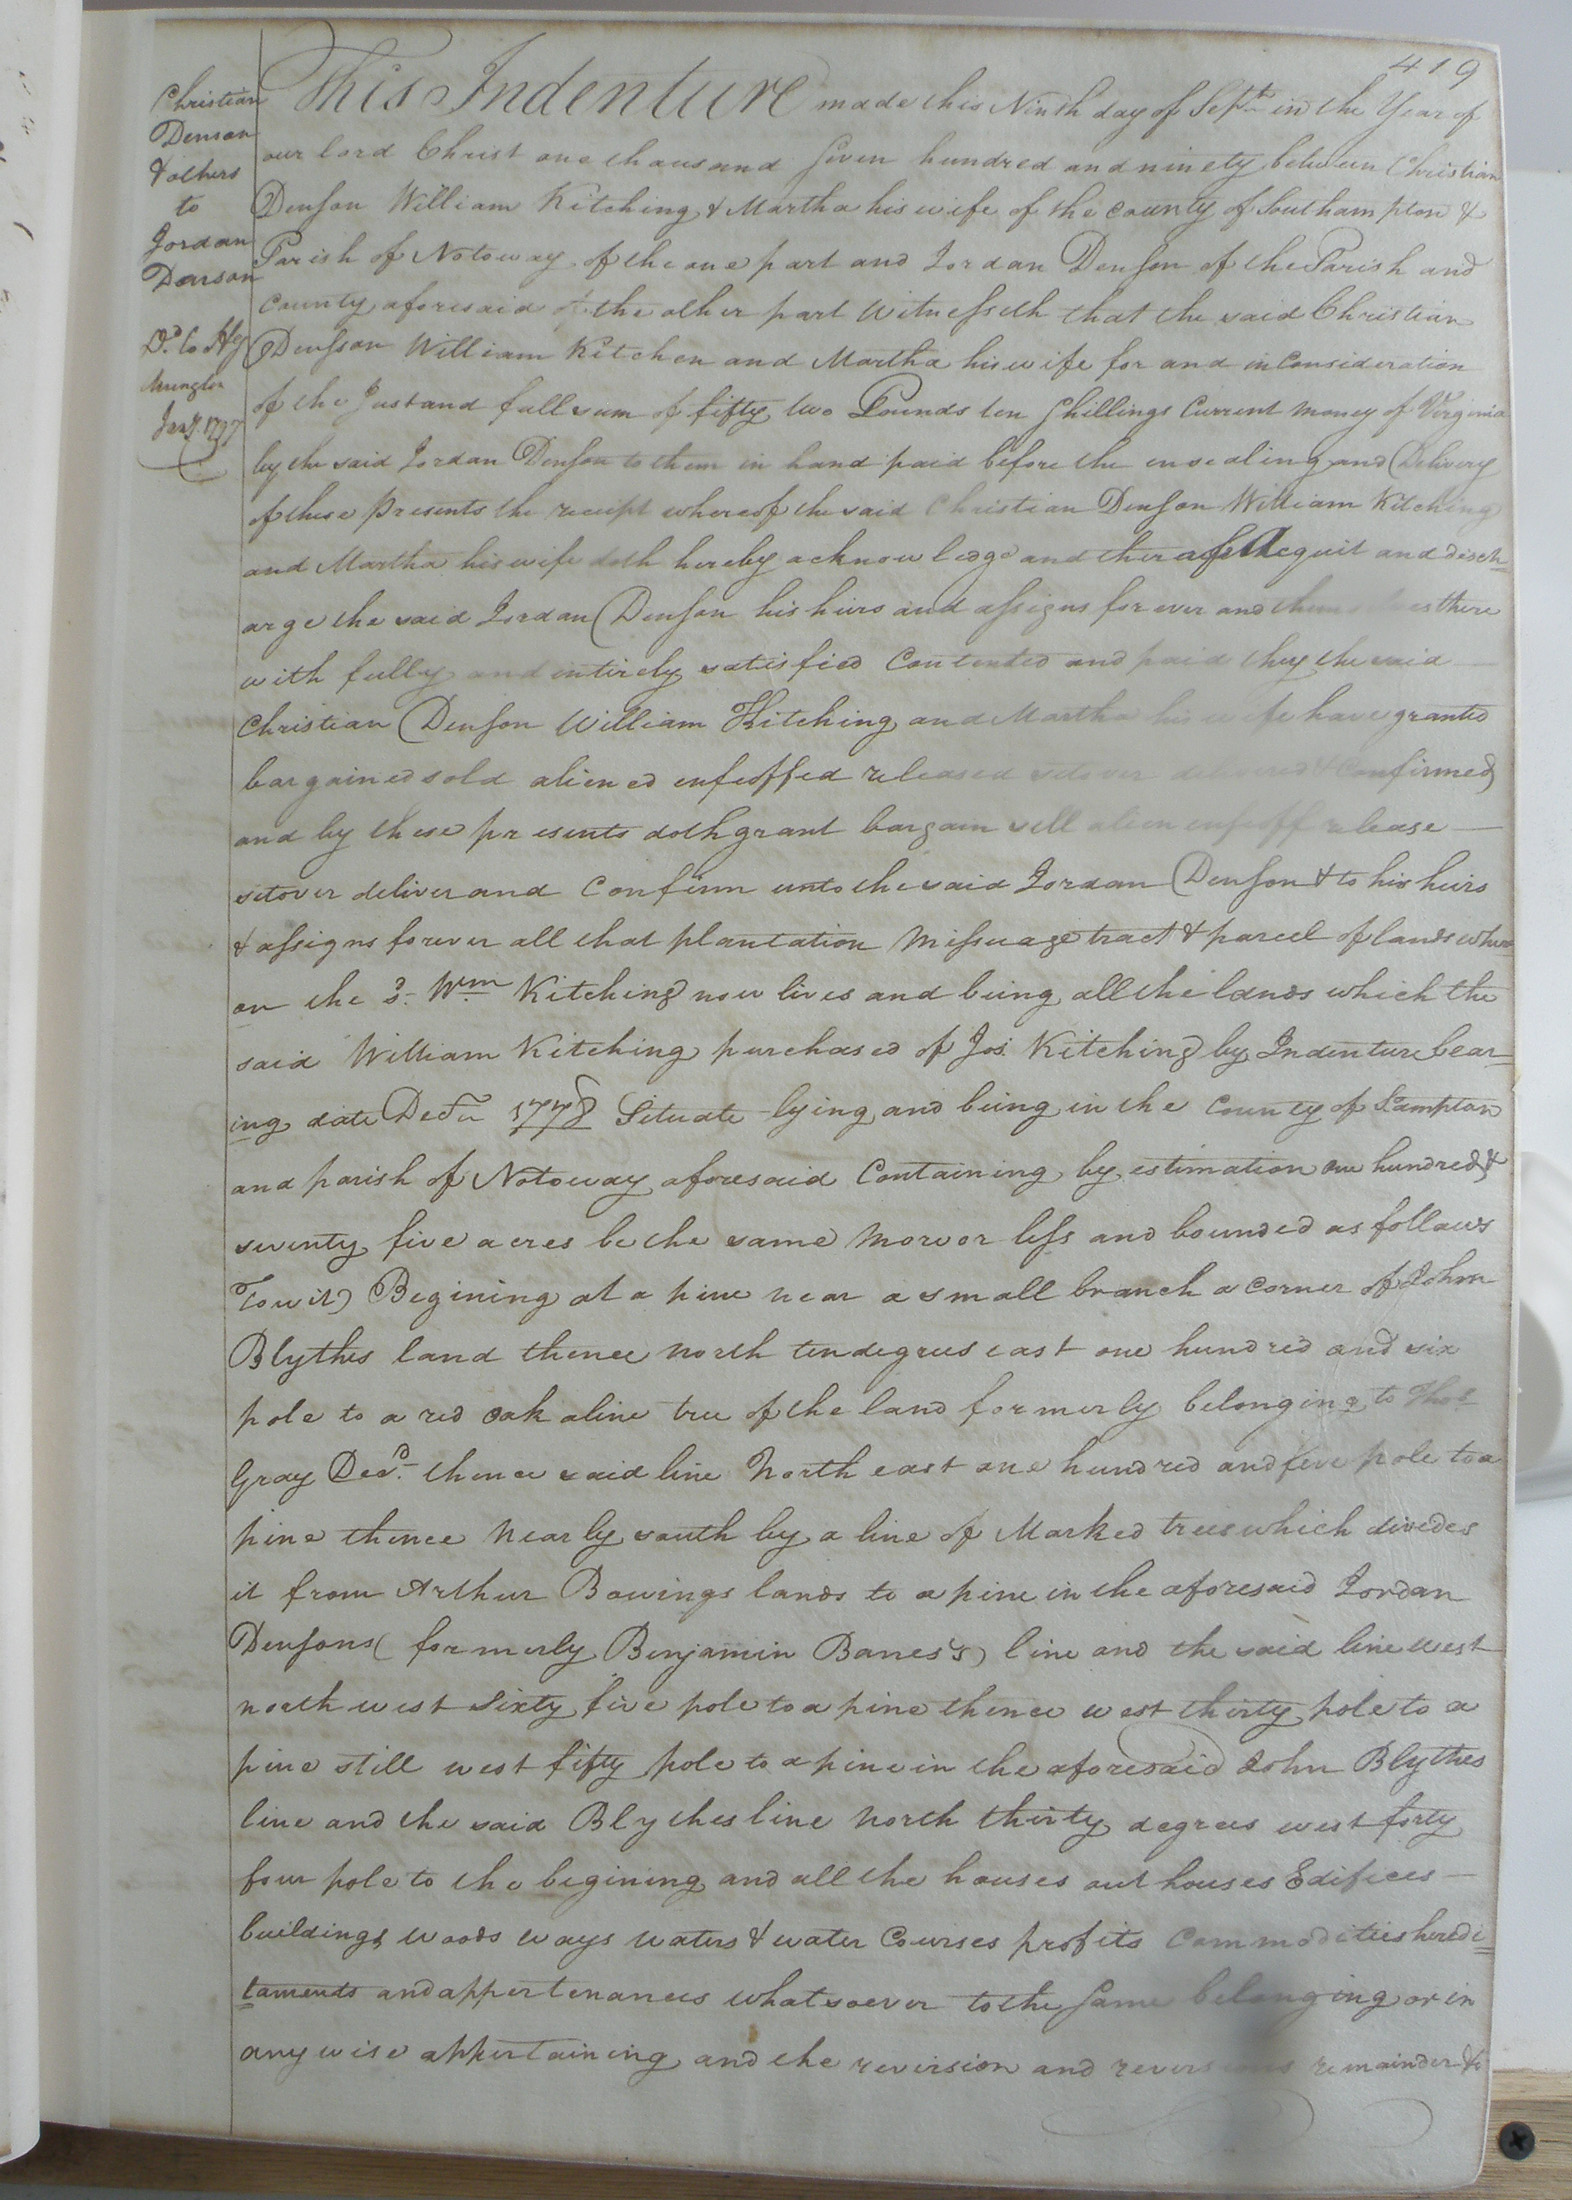 419
Christian
Denson
& others
to
Jordan
Denson
Dd. to Hy
Jany. 1797
This Indenture made this Ninth day of Sept. in the Year of
our lord Christ one thousand Seven hundred and ninety between Christian
Denson William Kitching & Martha his wife of the County of Southampton &
Parish of Notoway of the one part and Jordan Denson of the Parish and
County aforesaid of the other part Witnesseth that the said Christian
Densson William Kitchen and Martha his wife for and in Consideration
of the Just and full sum of fifty two Pounds ten Shillings Current Money of Virginia
by the said Jordan Denson to them in hand paid before the ensealing and Delivery
of these Presents the receipt whereof the said Christian Denson William Kitching
and Martha his wife doth hereby acknowledge and therof Acquit and disch=
arge the said Jordan Denson his hiers and assigns for ever and themselves there
with fully and intirely satisfied Contented and paid they the said
Christian Denson William Kitching and Martha his wife have granted
bargained sold aliened enfeoffed released setover delivered & Confirmed
and by these presents doth grant bargain sell alien enfeoff release
setover deliver and Confirm unto the said Jordan Denson & to his heirs
& assigns forever all that plantation Missuage tract & parcel of lands where
on the sd. Wm Kitching now lives and being all the lands which the
said William Kitching purchased of Jos. Kitching by Indenture bear=
ing date Decr 1778 Situate lying and being in the County of S.ampton
and parish of Notoway aforesaid Containing by estimation one hundred &
seventy five acres be the same More or less and bounded as follows
Towit) Begining at a pine near a small branch a corner of John
Blythes land thence north ten degrees east one hundred and six
pole to a red oak a line tree of the land formerly belonging to Thos.
Gray Decd. thence said line North east one hundred and five pole to a
pine thence Nearly south by a line of Marked trees which divedes
it from Arthur Bowings lands to a pine in the aforesaid Jordan
Densons (formerly Benjamin Banes's) line and the said line west
north west Sixty five pole to a pine thence west thirty pole to a
pine still west fifty pole to a pine in the aforesaid John Blythes
line and the said Blythes line North thirty degrees west forty
four pole to the begining and all the houses out houses Edifices
buildings woods ways waters & water Courses profits Commodities heredi=
taments and appertenances whatsoever to the Same belonging or in
any wise appertaining and the reversion and reversions remainder &